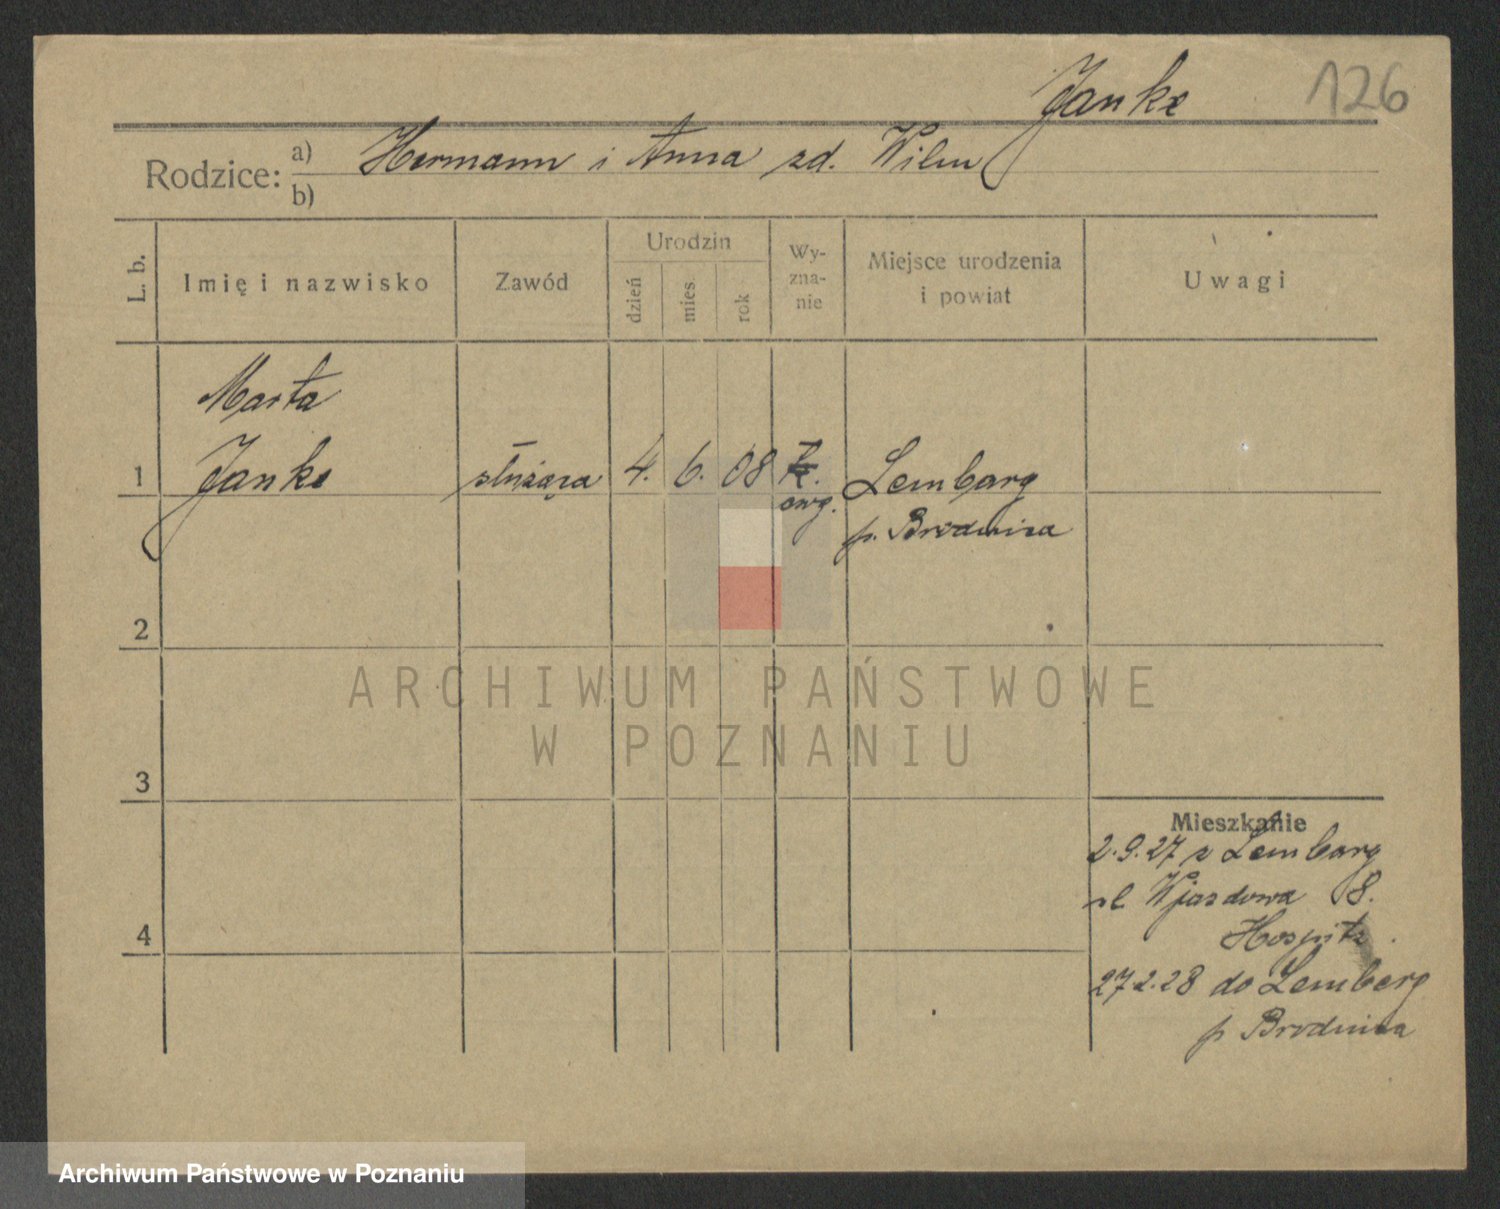 Janke 126
Rodzice: a) Hermann i Anna zd. Wilm
b)
L. b. Imię i nazwisko Zawód Urodzin dzień mies rok Wy-
zna-
nie Miejsce urodzenia
i powiat Uwagi
Marta
1 Janke służąca 4. 6. 08 k. Lembarg
ewg. p. Brodnica
2
ARCHIWUM PAŃSTWOWE
W POZNANIU
3
Mieszkanie
2.9.27 z Lembarg
ul Wjazdowa 8.
4 Hospitz.
27 2.28 do Lemberg
p Brodnica
Archiwum Państwowe w Poznaniu